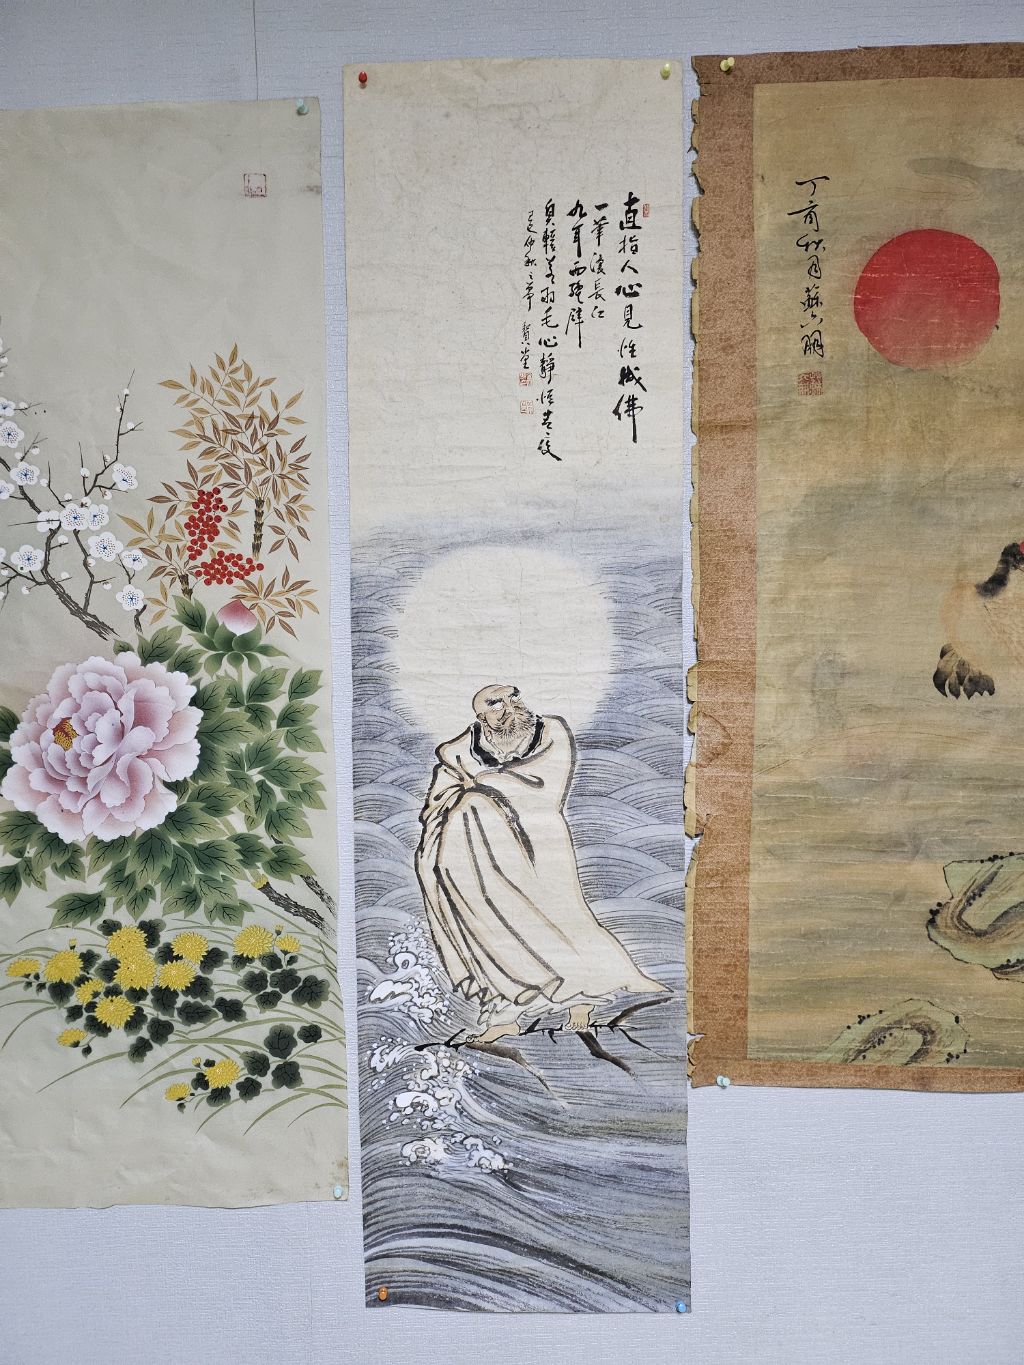 直指人心見性成佛
一葦渡長江
九年面壁
身輕若羽毛心靜
己巳仲秋之筆 賢堂
丁亥秋月蘇六朋